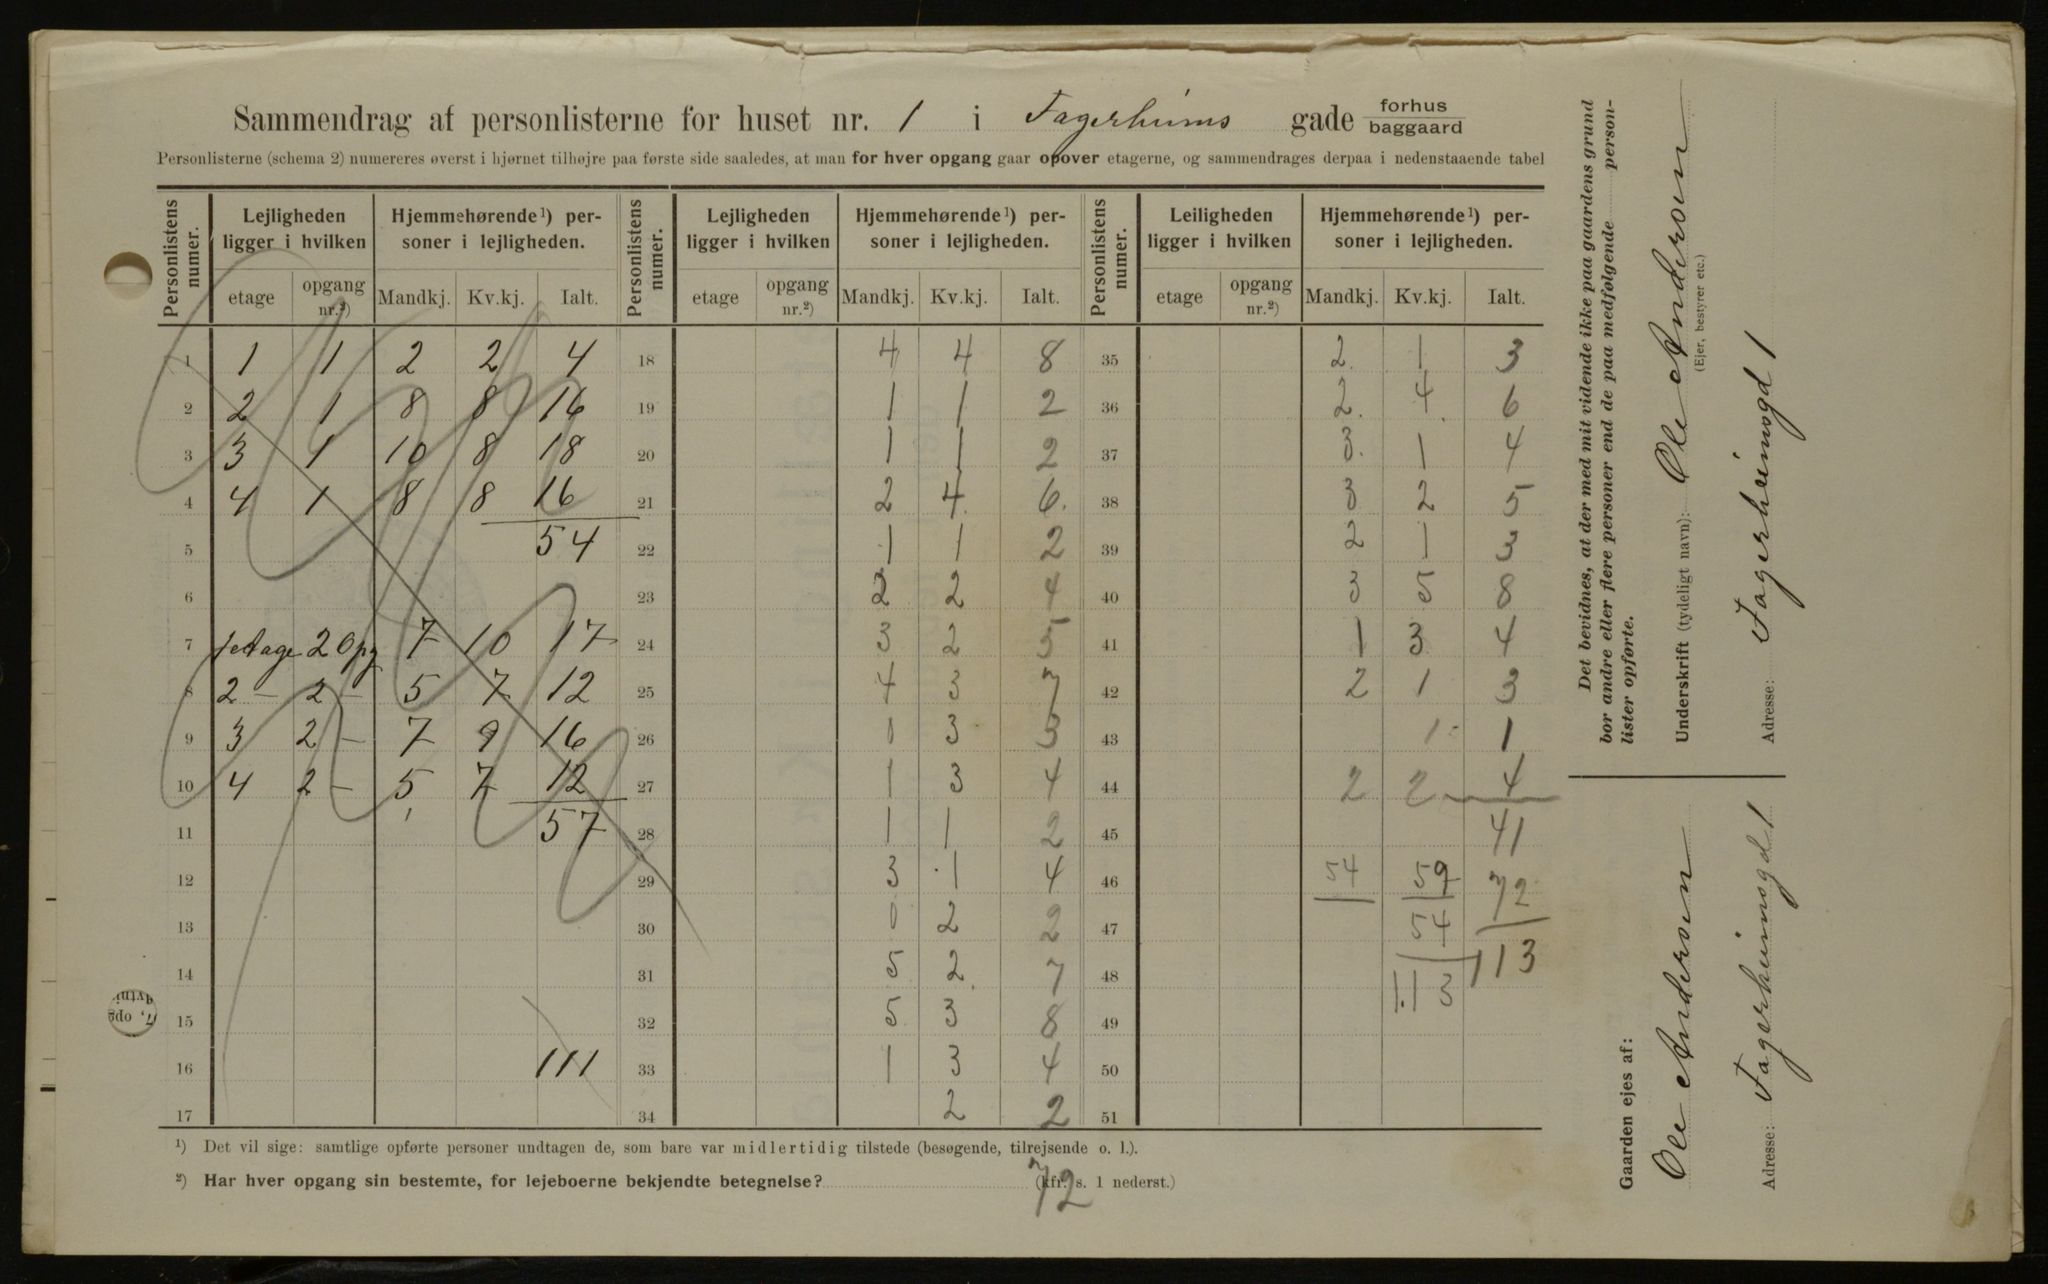 Sammendrag af personlisterne for huset nr. 1 i Fagerheims gade forhus baggaard
Personlisterne (schema 2) numereres øverst i hjørnet tilhøjre paa første side saaledes, at man for hver opgang gaar opover etagerne, og sammendrages derpaa i nedenstaaende tabel
Personlistens numer. Lejligheden ligger i hvilken Hjemmehørende¹) personer i lejligheden. Personlistens numer. Lejligheden ligger i hvilken Hjemmehørende¹) personer i lejligheden. Personlistens numer. Leiligheden ligger i hvilken Hjemmehørende¹) personer i lejligheden.
etage opgang nr.²) Mandkj. Kv.kj. Ialt. etage opgang nr.²) Mandkj. Kv.kj. Ialt. etage opgang nr.²) Mandkj. Kv.kj. Ialt.
1 1 1 2 2 4 18 4 4 8 35 2 1 3
2 2 1 8 8 16 19 1 1 2 36 2 4 6
3 3 1 10 8 18 20 1 1 2 37 3 1 4
4 4 1 8 8 16 21 2 4 6 38 3 2 5
5 54 22 1 1 2 39 2 1 3
6 23 2 2 4 40 3 5 8
7 1etage 2 Opg 7 10 17 24 3 2 5 41 1 3 4
8 2 – 2 – 5 7 12 25 4 3 7 42 2 1 3
9 3 2 – 7 9 16 26 0 3 3 43 1 1
10 4 2 – 5 7 12 27 1 3 4 44 2 2 4
11 57 28 1 1 2 45 41
12 29 3 1 4 46 54 59 72
13 30 0 2 2 47 54
14 31 5 2 7 48 113 113
15 32 5 3 8 49
16 111 33 1 3 4 50
17 34 2 2 51
¹) Det vil sige: samtlige opførte personer undtagen de, som bare var midlertidig tilstede (besøgende, tilrejsende o. l.).
²) Har hver opgang sin bestemte, for lejeboerne bekjendte betegnelse? (kfr. s. 1 nederst.)
72
Det bevidnes, at der med mit vidende ikke paa gaardens grund
bor andre eller flere personer end de paa medfølgende person-
lister opførte.
Underskrift (tydeligt navn): Ole Anderson
(Ejer, bestyrer etc.)
Adresse: Fagerheimsgd 1
Gaarden ejes af:
Ole Anderson
Adresse: Fagerheimsgd 1